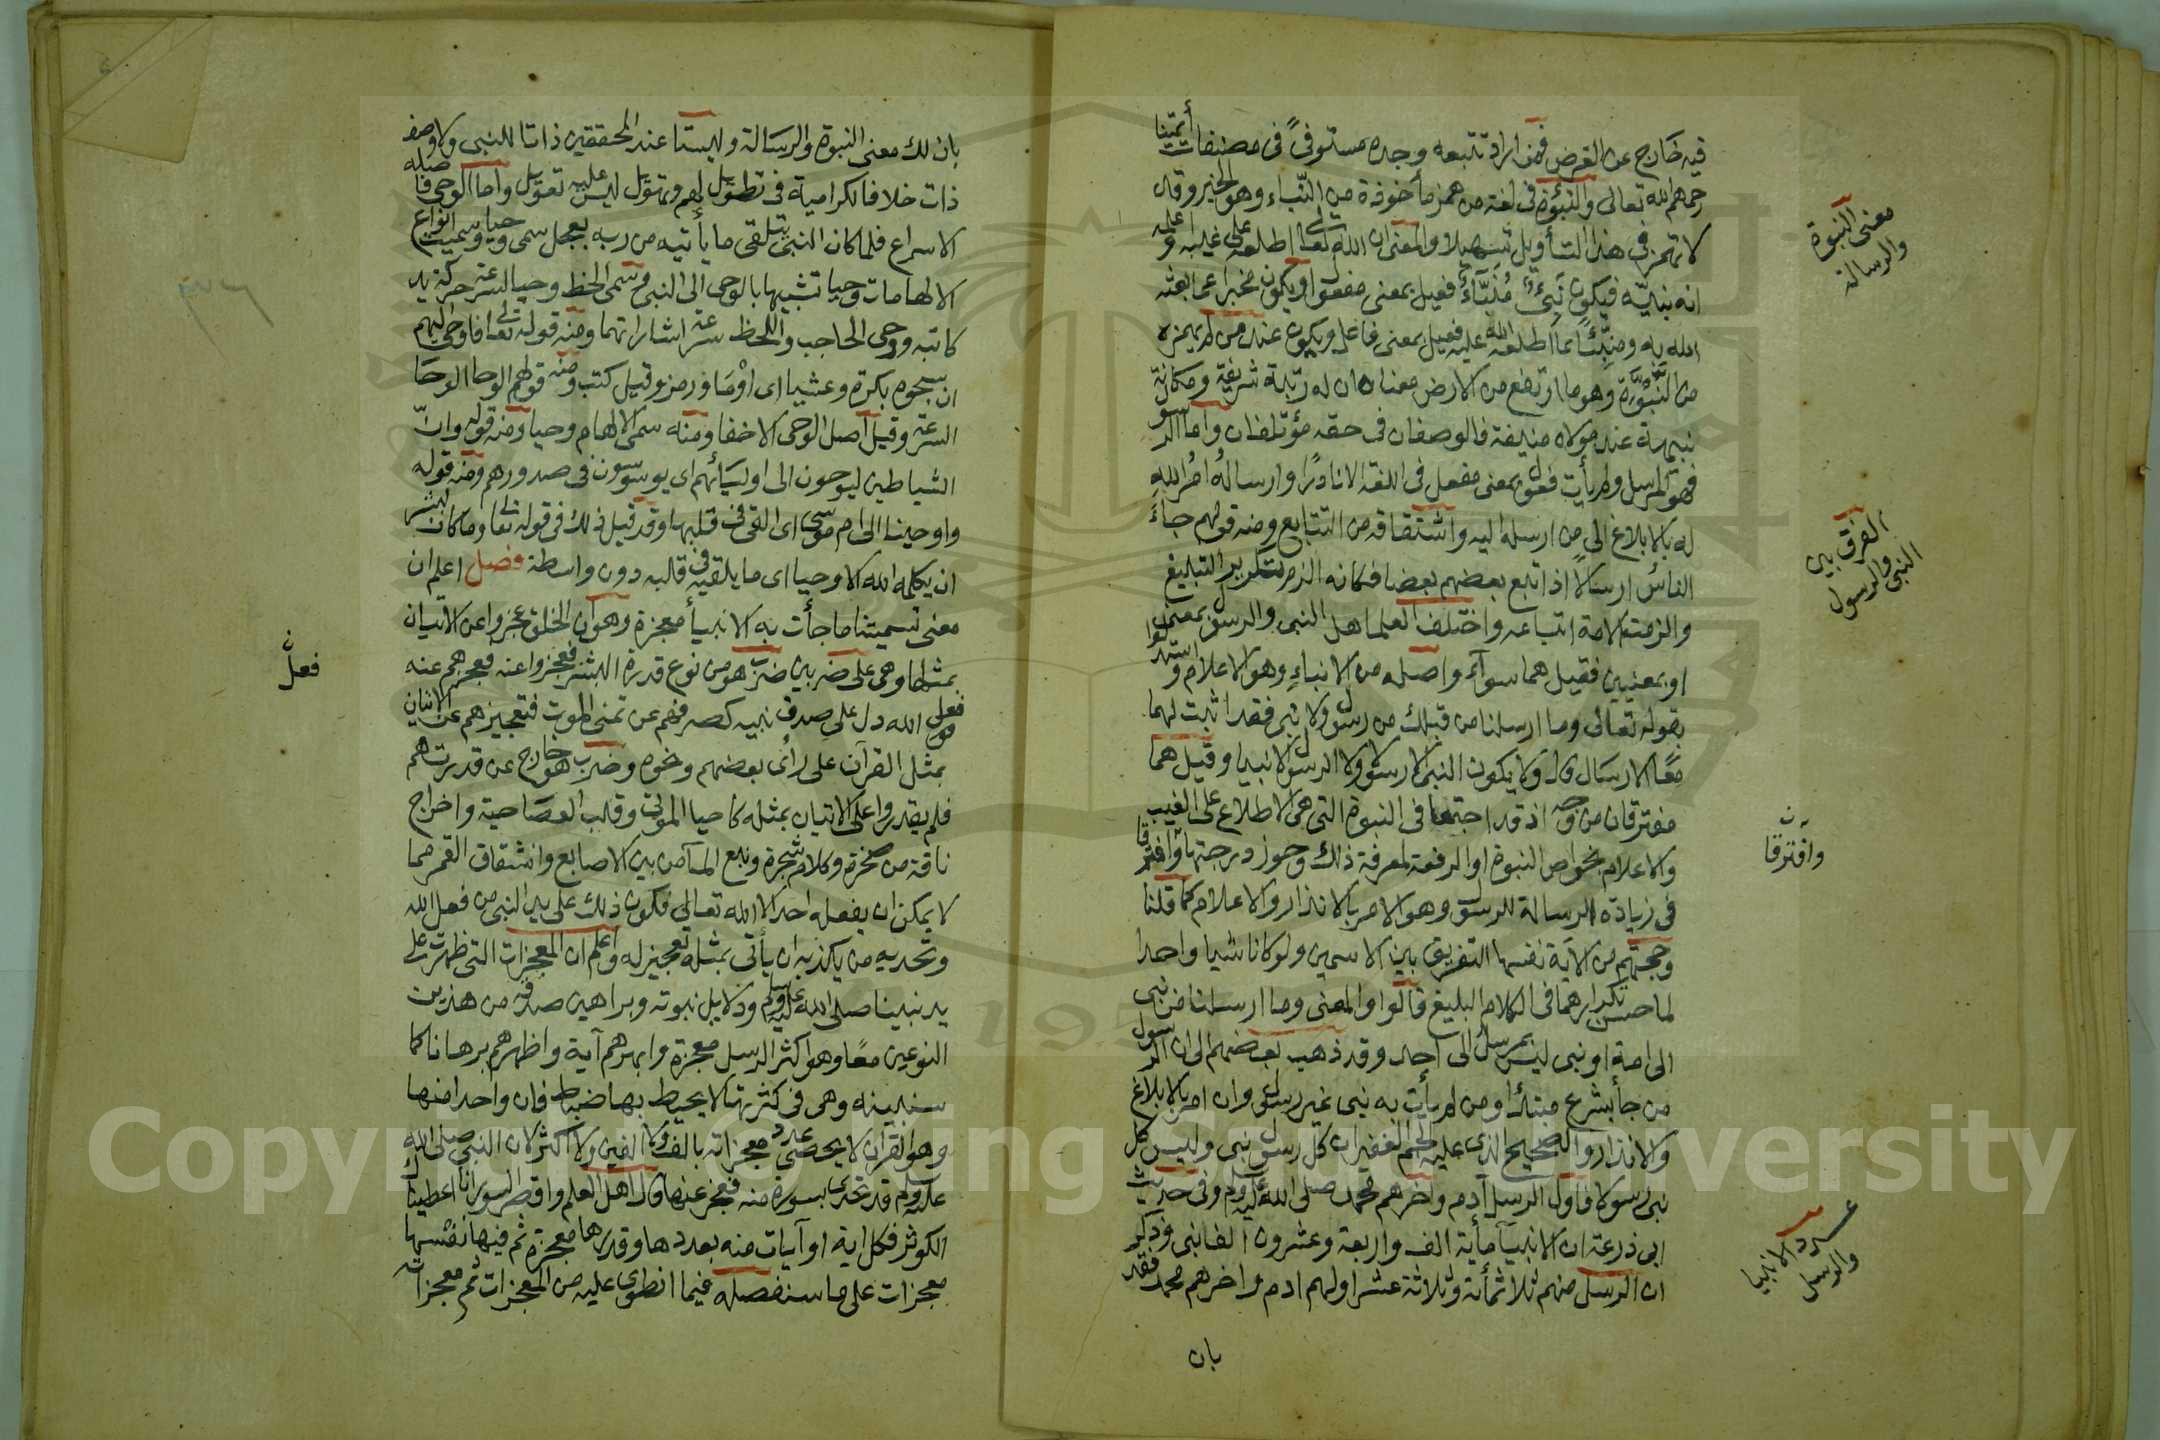 فيه خارج عن الغرض فمن اراد تتبعه وجده مستوفىً فى مصنفات أيمتنا
رحمهم الله تعالى والنبوة فى لغة من همز مأخوذة من النباء وهو الخبر وقد
لا تهمز فى هذا التأويل تسهيلا والمعنى ان الله تعالى اطلعه على غيبه واعلمه
انه نبيّه فيكون نبىءٌ مُنَبَّأٌ فعيل بمعنى مفعول او يكون مخبرا عما بعثه
الله به ومنبِّئاً بما اطلعه الله عليه فعيل بمعنى فاعل ويكون عند من لم يهمزه
من النَّبْوَة وهو ما ارتفع من الارض معناه ان له رتبة شريفة ومكانة
نبيهة عند مولاه منيفة فالوصفان فى حقه مؤتلفان واما الرسول
فهو المرسل ولم يأت فعول بمعنى مفعل فى اللغة الا نادرًا وارساله امر الله
له بالابلاغ الى من ارسله اليه واشتقاقه من التتابع ومنه قولهم جاءَ
الناسُ ارسالاً اذا تبع بعضهم بعضا فكانه الزم تكرير التبليغ
والزمت الامة اتباعه واختلف العلما هل النبى والرسول بمعنى
او بمعنيين فقيل هما سوآء واصله من الانباءِ وهو الاعلام واستدلوا
بقوله تعالى وما ارسلنا من قبلك من رسول ولا نبى فقد اثبت لهما
معًا الارسال قال ولا يكون النبى الا رسولا ولا الرسول الا نبيا وقيل هما
مفترقان من وجه اذ قد اجتمعا فى النبوة التى هى الاطلاع على الغيب
والاعلام بخواص النبوة او الرفعة لمعرفة ذلك وحوز درجتها وافترقا
فى زيادة الرسالة للرسول وهو الامر بالانذار والاعلام كما قلنا
وحجتهم من الآية نفسها التفريق بين الاسمين ولو كانا شيا واحدا
لما حسن تكرارهما فى الكلام البليغ قالوا والمعنى وما ارسلنا من نبى
الى امة او نبى ليس بمرسل الى احد وقد ذهب بعضهم الى ان الرسول
من جأ بشرع مبتدًا ومن لم يأت به نبى غير رسول وان امر بالابلاغ
والانذار والصحيح الذى عليه الجم الغفير ان كل رسول نبى وليس كل
نبى رسولا فاول الرسل آدم واخرهم محمد صلى الله عليه وسلم وفى حديث
ابى ذر عنه ان الانبيآ مأية الف واربعة وعشرون الفا نبى وذكر
ان الرسل منهم ثلاثمأئة وثلاثة عشر اولهم ادم واخرهم محمد فقد
بان
معنى النبوة
والرسالة
الفرق بين
النبى والرسول
وافترقا
عدد الانبيا
والرسل
بان لك معنى النبوة والرسالة وليستا عند المحققين ذاتا للنبى ولا وصف
ذات خلافا لكرامية فى تطويل لهم وتهويل ليس عليه تعويل واما الوحى فاصله
الاسراع فلما كان النبى يتلقى ما يأتيه من ربه بعجل سمى وحيا وسميت انواع
الالهامات وحيا تشبيها بالوحى الى النبى وسمى الخط وحيا لسرعة حركة يد
كاتبه ووحى الحاجب واللحظ سرعة اشارتهما ومنه قوله تعالى فاوحى اليهم
ان سبحوه بكرة وعشيا اى اوْمَا ورمز وقيل كتب ومنه قولهم الوحا الوحَا
السرعة وقيل اصل الوحى الاخفا ومنه سمى الالهام وحيا ومنه قوله وانّ
الشياطين ليوحون الى اوليَائهم اى يوسوسون فى صدورهم ومنه قوله
واوحينا الى ام موسى اى القى فى قلبها وقد قيل ذلك فى قوله تعالى وما كان لبشر
ان يكلمه الله الا وحيا اى ما يلقيه فى قلبه دون واسطة فصل اعلم ان
معنى تسميتنا ما جأت به الانبيأ معجزة وهو ان الخلق عجزوا عن الاتيان
بمثلها وهى على ضربين ضرب هو من نوع قدرة البشر فعجزوا عنه فعجزهم عنه
فعل الله دل على صدق نبيه كصرفهم عن تمنى الموت فتعجيزهم عن الاتيان
بمثل القرآن على رأى بعضهم ونحوه وضرب هو خارج عن قدرتهم
فلم يقدروا على الاتيان بمثله كاحيا الموتى وقلب العصَا حية واخراج
ناقة من صخرة وكلام شجرة ونبع المآ من بين الاصابع وانشقاق القمر مما
لا يمكن ان يفعله احد الا الله تعالى فكون ذلك على يد النبى من فعل الله
وتحديه من يكذبه ان يأتى بمثله تعجيز له واعلم ان المعجزات التى ظهرت على
يد نبينا صلى الله عليه وسلم ودلايل نبوته وبراهين صدقه من هذين
النوعين معًا وهو اكثر الرسل معجزة وابهرهم آية واظهرهم برهانا كما
سنبينه وهى فى كثرتها لا يحيط بها ضبط فان واحدا منها
وهو القران لا يحصى عدد معجزاته بالف ولا الفين ولا اكثر لان النبى صلى الله
عليه وسلم قد تحدى بسورة منه فعجز عنها قال اهل العلم واقصر السور انا اعطيناك
الكوثر فكل اية او آيات منه بعددها وقدرها معجزة ثم فيها نفسها
معجزات على ما سنفصله فيما انطوى عليه من المعجزات ثم معجزاته
فعل
Copyright © King Saud University
195